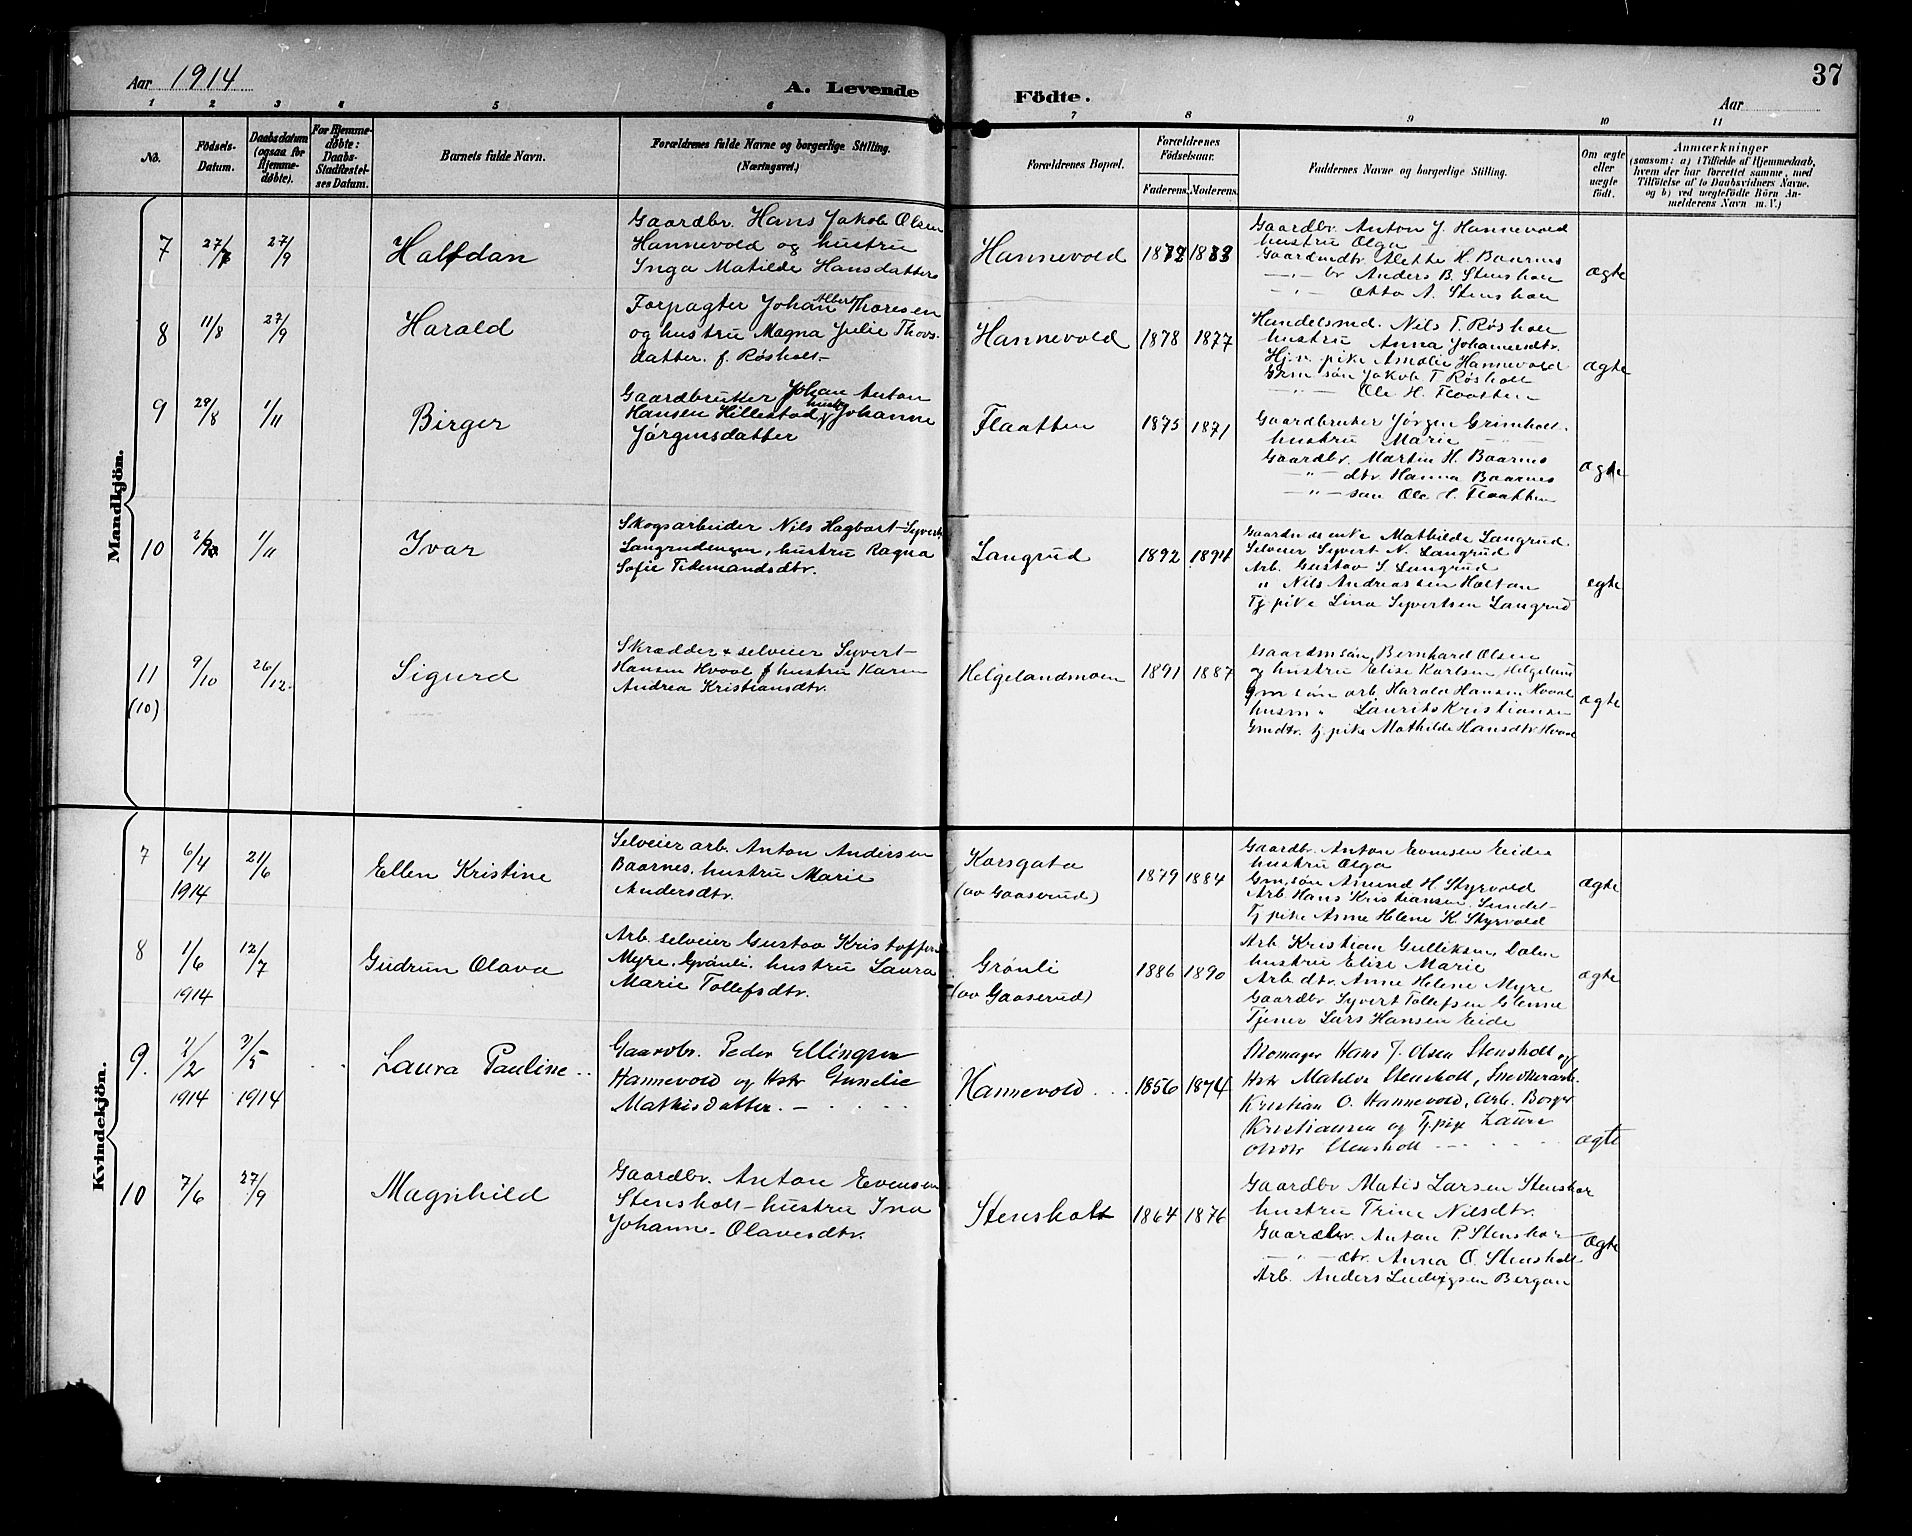 Aar 1914
A. Levende
Födte.
37
Aar
1 2 3 4 5 6 7 8 9 10 11
No.
Födsels-Datum.
Daabsdatum (ogsaa for Hjemmedøbte).
For Hjemmedøbte: Daabs-Stadfæstelses Datum.
Barnets fulde Navn.
Forældrenes fulde Navne og borgerlige Stilling.
(Næringsvei.)
Forældrenes Bopæl.
Forældrenes Födselsaar.
Faderens. Moderens.
Faddernes Navne og borgerlige Stilling.
Om ægte eller uægte født.
Anmærkninger
(saasom: a) i Tilfælde af Hjemmedaab,
hvem der har forrettet samme, med
Tilföielse af to Daabsvidners Navne,
og b) ved uægtefödte Börn An-
melderens Navn m. V.)
Mandkjön.
7 27/7 27/9 Halfdan
Gaardbr. Hans Jakob Olsen
Hannevold og hustru
Inga Matilde Hansdatter
Hannevold 1883
Gaardbr. Anton J. Hannevold
hustru Olga
Gaardmdtr. Alette H. Baarnes
—"— br Anders B. Stensholt
—"— Otto A. Stensholt
ægte
8 11/8 27/9 Harald
Forpagter Johan Albert Thoresen
og hustru Magna Julie Thovs-
datter. f. Røsholt-
Hannevold 1878 1877
Handelsmd. Nils T. Røsholt
hustru Anna Johannesdtr.
Hj.v. pike Amalie Hannevold
Grm søn Jakob T Røsholt
—"— Ole H. Flaatten
ægte
9 29/8 1/11 Birger
Gaardbruker Johan Anton
Hansen Hillestad hustru Johanne
Jörgensdatter
Flaatten 1875 1871
Gaardbruker Jørgen Grimholt.
hustru Marie —"—
Gaardbr. Martin H. Baarnes
—"— dtr. Hanna Baarnes
—"— søn Ole H. Flaatten
ægte
10 1/11 Ivar
Skogsarbeider Nils Hagbart Syverts
Langrudengen, hustru Ragna
Sofie Tidemandsdtr.
Langrud 1892 1894
enke Mathilde Langrud.
Selveier Syvert N. Langrud
Arb. Gustav S Langrud
" Nils Andreassen Holtan
Tj. pike Lina Syvertsen Langrud
egte
11 (10) 9/10 26/12. Sigurd
Skrædder & selveier Syvert
Hansen Hvaal & hustru Karen
Andrea Kristiansdtr.
Helgelandmoen 1891 1887
Gaardmsøn Bernhard Olsen
og hustru Elise Karlsen Helgeland
Gm søn arb. Harald Hansen Hvaal
husm " Laurits Kristiansen
Gmdtr. tj. pike Mathilde Hansdtr Hvaal
ægte
Kvindekjön.
7 6/4 1914 21/6 Ellen Kristine
Selveier arb. Anton Andersen
Baarnes, hustru Marie
Andersdtr.
Korsgata
(av Gaaserud) 1879 1884
Gaardbr. Anton Evensen Eidee
hustru Olga
Gm. søn Amund H. Styrvold
Arb. Hans Kristiansen Sundet-
Tj. pike Anne Helene K. Styrvold
ægte
8 1/6 1914 12/7 Gudrun Olava
Arb. selveier Gustav Kristoffers
Myre, Grønli, hustru Laura
Marie Tollefsdtr.
Grønli
(av Gaaserud) 1886 1890
Arb Kristian Gulliksen, Dalen
hustru Elise Marie
Arb dtr. Anne Helene Myre
Gaardbr. Syvert Tollefsen Glenne
Tjener Lars Hansen Eide
ægte
9. 1/2 1914 3/5 1914 Laura Pauline
Gaardbr. Peder Ellingsen
Hannevold og Hstr Gunelie
Mathisdatter. —
Hannevold 1856 1874
Skomager Hans J. Olsen Stensholt og
Hstr Matilde Stensholt, Snedkerarb.
Kristian O. Hannevold, Arb. Borger
Kristiansen og Tj. pige Laura
Olsdtr Stensholt —
ægte
10 7/6 27/9 Magnhild
Gaardbr. Anton Evensen
Stensholt - hustru Ina
Johann. Olavesdtr.
Stensholt 1864 1876
Gaardbr Matis Larsen Stensholt
hustru Trine Nilsdtr.
Gaardbr. Anton P. Stensholt
—"— dtr. Anna O. Stensholt
Arb. Anders Ludvigsen Bergan
Ægte